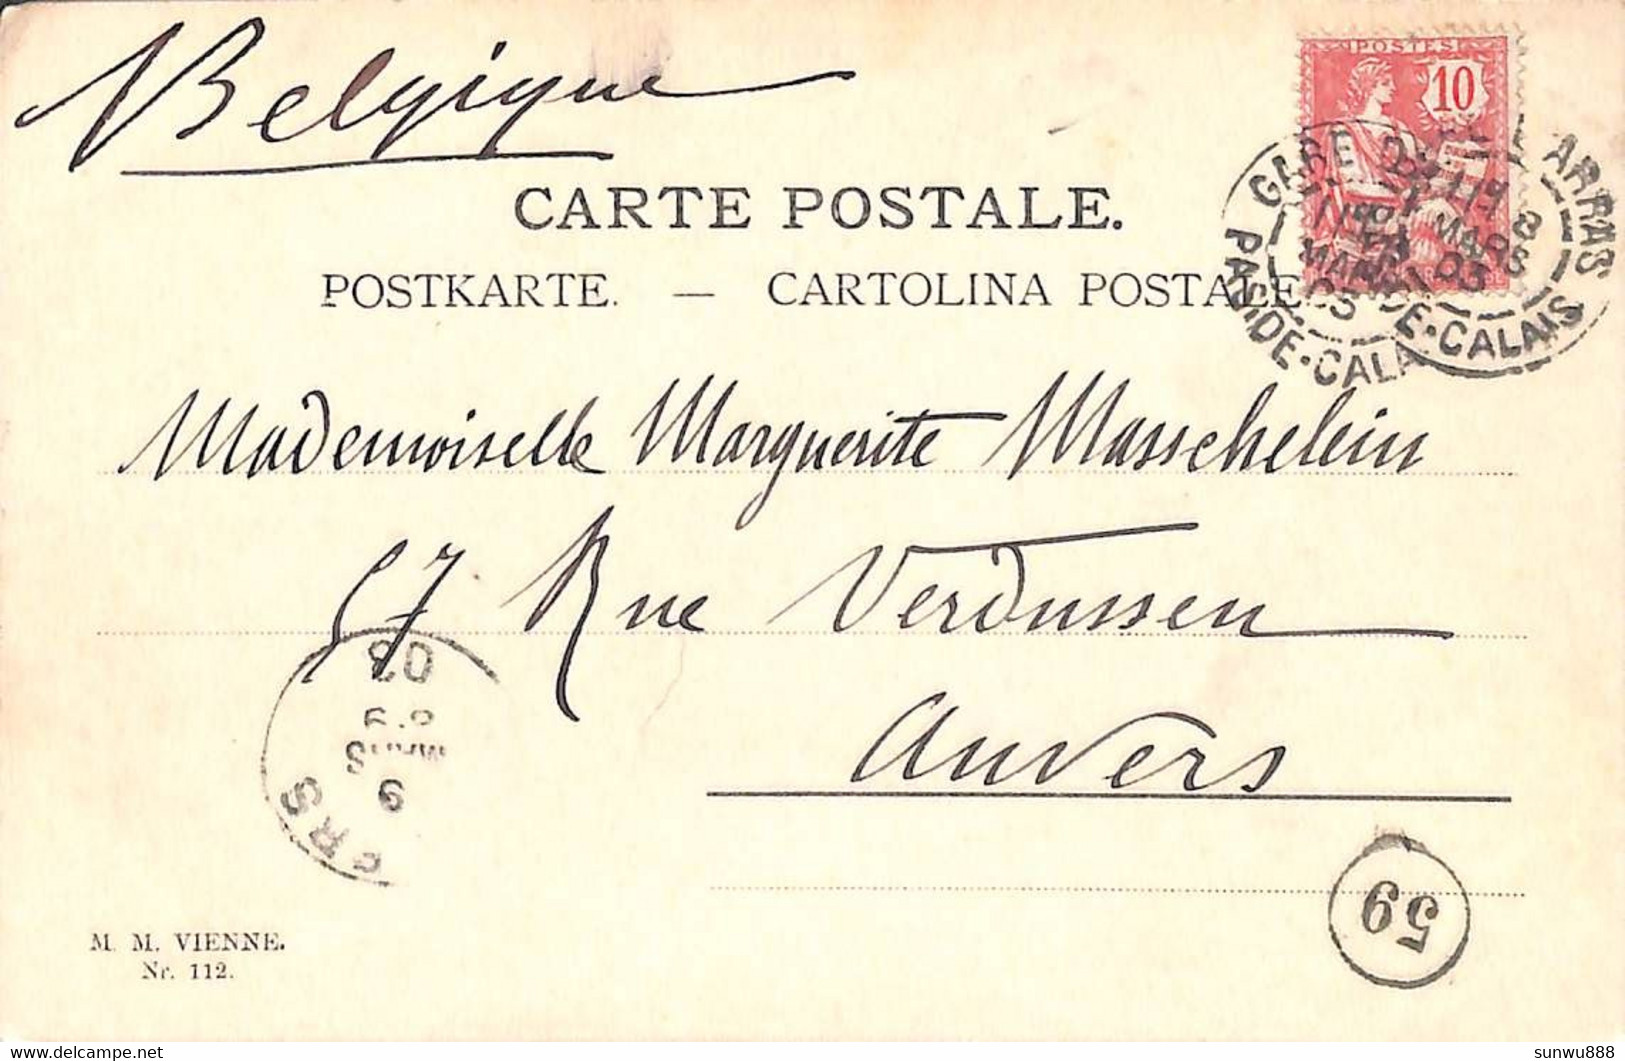 Belgique
POSTES
10
GARE D'ARRAS
PAS-DE-CALAIS
8
MARS
03
CARTE POSTALE.
POSTKARTE. — CARTOLINA POSTALE.
Mademoiselle Marguerite Masschelein
57 Rue Verdussen
Anvers
9
MARS
03
59
M. M. VIENNE.
Nr. 112.
sunwu888